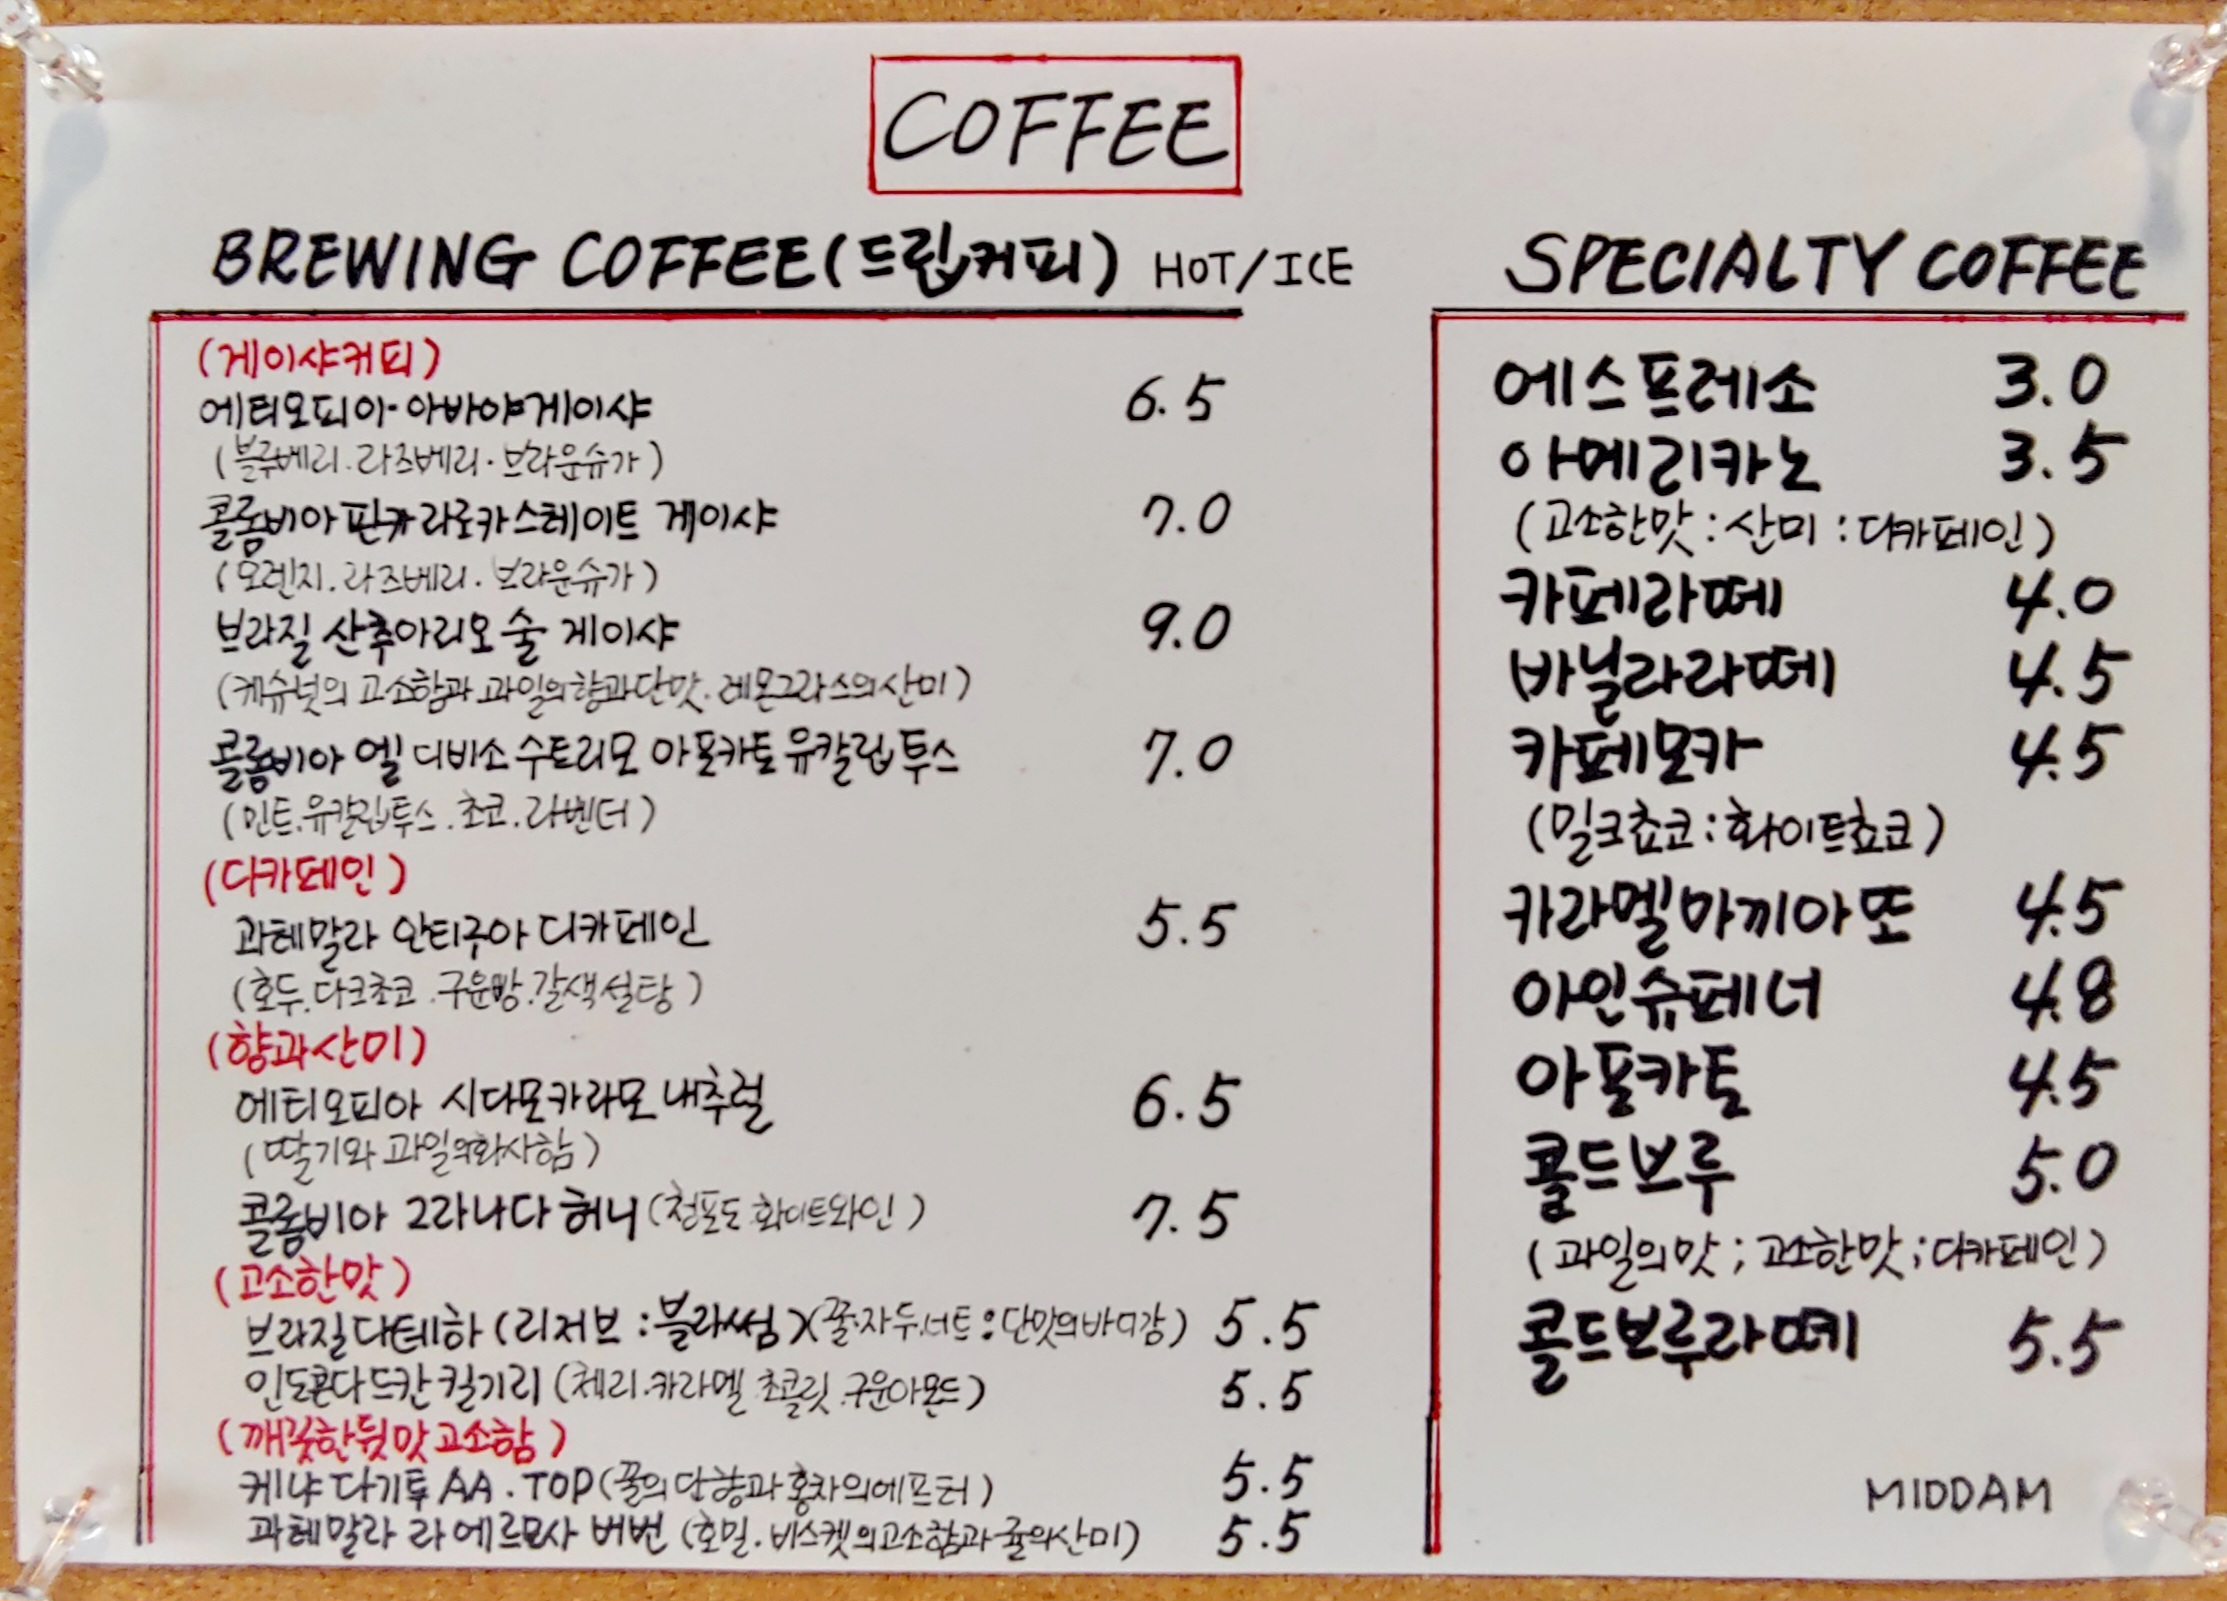 COFFEE
BREWING COFFEE (드립커피) HOT/ICE
(게이샤커피)
에티오피아·아바야게이샤 6.5
(블루베리.라즈베리.브라운슈가)
콜롬비아 핀카라로카스테이트 게이샤 7.0
(오렌지.라즈베리.브라운슈가)
브라질 산추아리오 술 게이샤 9.0
(캐슈넛의 고소함과 과일의향과단맛.레몬그라스의산미)
콜롬비아 엘 디비소 수토리모 아포카토 유칼립투스 7.0
(민트.유칼립투스.초코.라벤더)
(디카페인)
과테말라 안티구아 디카페인 5.5
(호두.다크초코.구운빵.갈색설탕)
(향과산미)
에티오피아 시다모카라모 내추럴 6.5
(딸기와 과일의화사함)
콜롬비아 그라나다 허니 (청포도 화이트와인) 7.5
(고소한맛)
브라질다테하 (리저브:블라썸)(꿀.자두.너트:단맛의바디감) 5.5
인도콘다드칸 킬기리 (체리.카라멜 초콜릿.구운아몬드) 5.5
(깨끗한뒷맛고소함)
케냐 다기투 AA.TOP (꿀의 단향과 홍차의에프터) 5.5
과테말라 라 에르모사 버번 (호밀.비스켓의고소함과 귤의산미) 5.5
SPECIALTY COFFEE
에스프레소 3.0
아메리카노 3.5
(고소한맛:산미:디카페인)
카페라떼 4.0
바닐라라떼 4.5
카페모카 4.5
(밀크쵸코:화이트쵸코)
카라멜마끼아또 4.5
아인슈페너 4.8
아포카토 4.5
콜드브루 5.0
(과일의맛;고소한맛;디카페인)
콜드브루라떼 5.5
MIDDAM